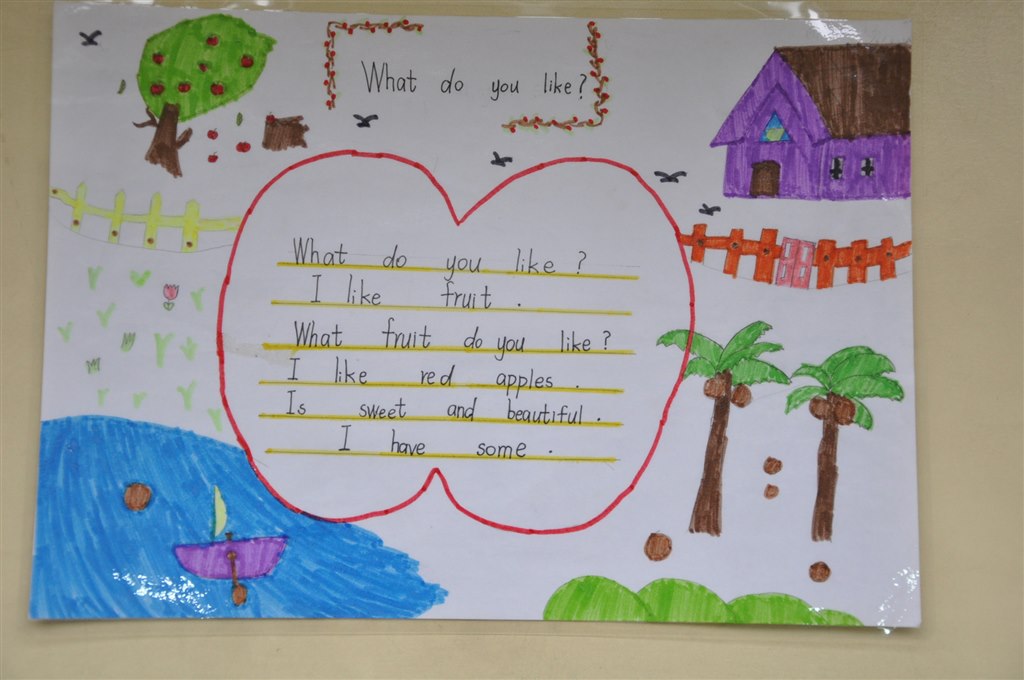 What do you like?
What do you like ?
I like fruit .
What fruit do you like ?
I like red apples .
Is sweet and beautiful .
I have some .